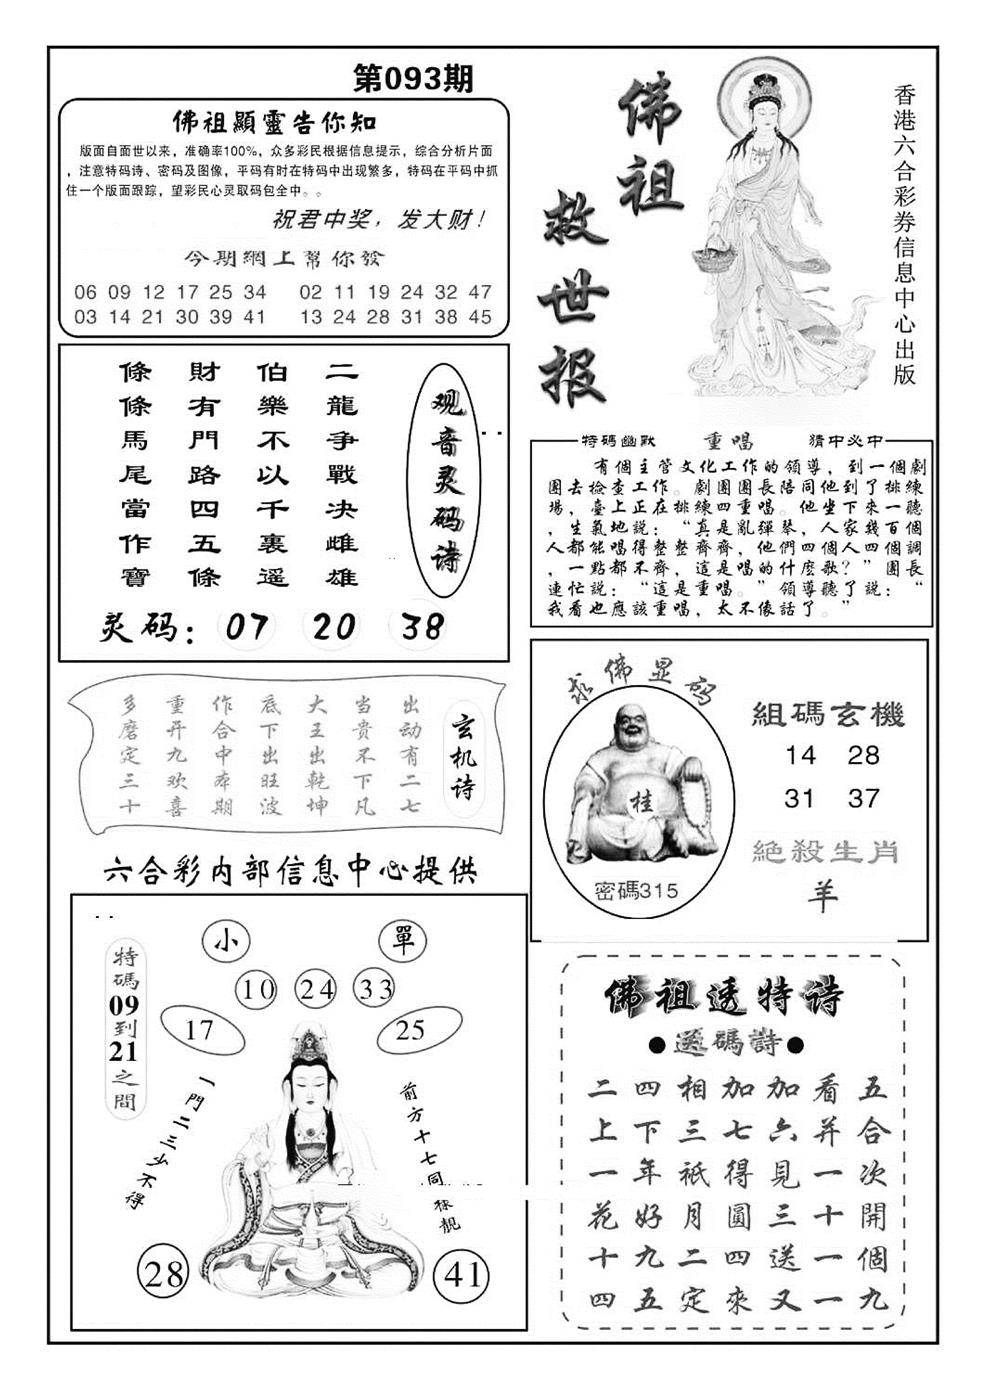 第093期
佛祖顯靈告你知
版面自面世以来，准确率100%，众多彩民根据信息提示，综合分析片面
，注意特码诗、密码及图像，平码有时在特码中出现繁多，特码在平码中抓
住一个版面跟踪，望彩民心灵取码包全中。。
祝君中奖，发大财！
今期網上幫你發
06 09 12 17 25 34 02 11 19 24 32 47
03 14 21 30 39 41 13 24 28 31 38 45
佛祖
救世报
香港六合彩券信息中心出版
观音灵码诗
二龍争戰决雌雄
伯樂不以千裏遥
財有門路四五條
條條馬尾當作寶
灵码：07 20 38
特碼幽默 重唱 猜中必中
有個主管文化工作的領導，到一個劇
團去檢查工作。劇團團長陪同他到了排練
場，臺上正在排練四重唱。他坐下來一聽
，生氣地説：“真是亂彈琴，人家幾百個
人都能唱得整整齊齊，他們四個人四個調
，一點都不齊，這是唱的什麽歌？”團長
連忙説：“這是重唱。”領導聽了説：“
我看也應該重唱，太不像話了。”
玄机诗
出动有二七
当贵不下凡
大王出乾坤
底下出旺波
作合中本期
重开九欢喜
多磨定三十
六合彩内部信息中心提供
求佛显码
桂
密碼315
組碼玄機
14 28
31 37
絕殺生肖
羊
小 單
10 24 33
17 25
特碼09到21之間
一門二三少不得
前方十七同樣靚
28 41
佛祖透特诗
●送碼詩●
五合次開個九
看并一十一一
加六見三送又
加七得圓四來
相三祇月二定
四下年好九五
二上一花十四